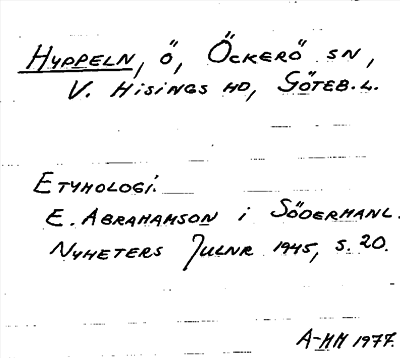 HYPPELN, Ö, ÖCKERÖ SN,
V. HISINGS HD, GÖTEB. L.
ETYMOLOGI.
E. ABRAHAMSON i SÖDERMANL.
NYHETERS JULNR 1945, S. 20.
A-HH 1977.